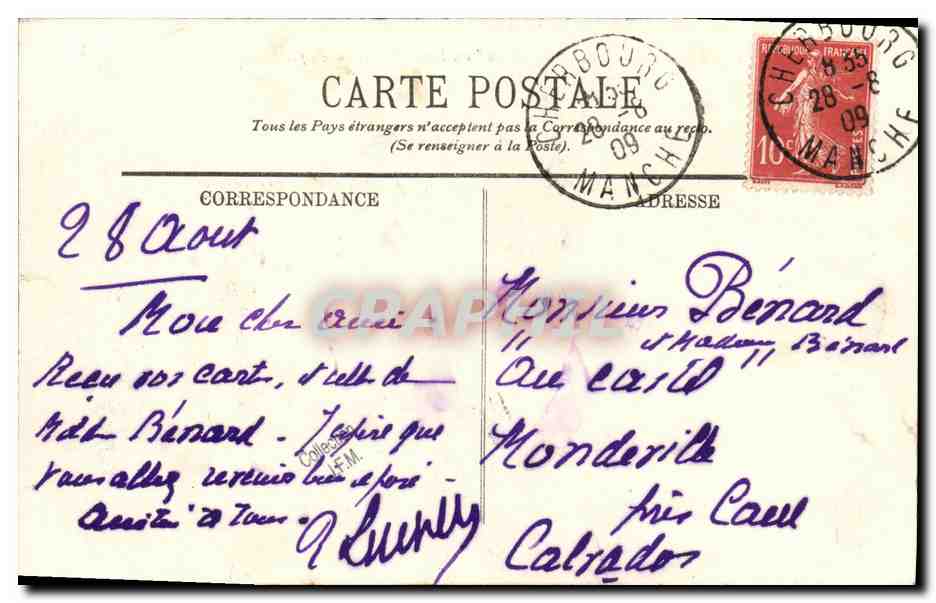 CARTE POSTALE
Tous les Pays étrangers n'acceptent pas la Correspondance au recto.
(Se renseigner à la Poste).
CHERBOURG
28 -8
09
MANCHE
REPUBLIQUE FRANÇAISE
10c
CHERBOURG
8 35
28 -8
09
MANCHE
CORRESPONDANCE
28 Aout
Mon cher ami
Reçu vos cartes, et celle de
Bénard - J'espère que
Vous allez revenir bien reposé -
Amitiés à tous.
ADRESSE
Monsieur Bénard
" et Madame " Bénard
Au castel
Mondeville
près Caen
Calvados
Collection
J.F.M.
CPAPHIL